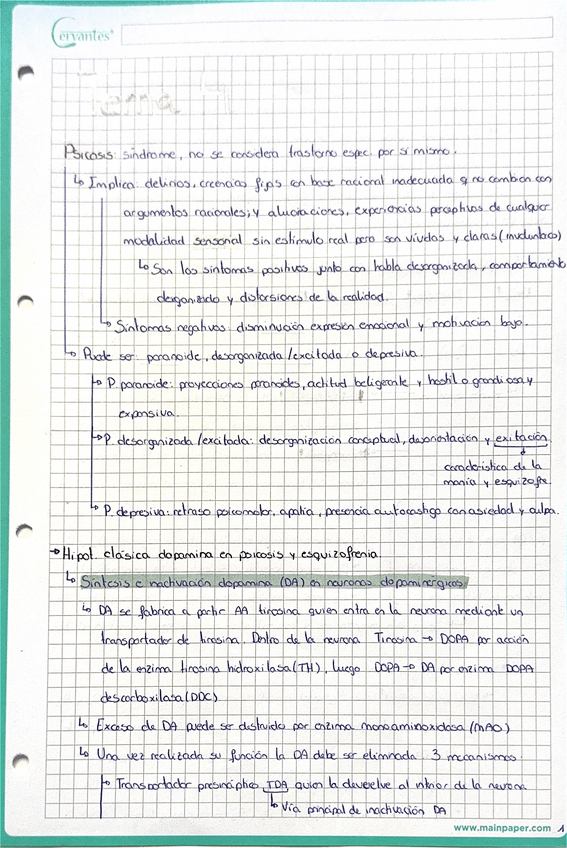 Cervantes
Tema 4
Psicosis: síndrome, no se considera trastorno espec. por sí mismo.
↳ Implica: delirios, creencias fijas con base racional inadecuada q no cambian con
argumentos racionales; y alucinaciones, experiencias perceptivas de cualquier
modalidad sensorial sin estímulo real pero son vívidas y claras (involuntario)
↳ Son los síntomas positivos junto con habla desorganizada, comportamiento
desorganizado y distorsiones de la realidad.
↳ Síntomas negativos: disminución expresión emocional y motivación bajo.
↳ Puede ser: paranoide, desorganizada/excitada o depresiva.
↳ P. paranoide: proyecciones paranoides, actitud beligerante y hostil o grandiosa y
expansiva.
↳ P. desorganizada/excitada: desorganización conceptual, desorientación y exitación
característica de la
manía y esquizofre.
↳ P. depresiva: retraso psicomotor, apatía, presencia autocastigo con asiedad y culpa.
→ Hipot. clásica dopamina en psicosis y esquizofrenia.
↳ Síntesis e inactivación dopamina (DA) en neuronas dopaminérgicas
↳ DA se fabrica a partir AA tirosina quien entra en la neurona mediante un
transportador de tirosina. Dntro de la neurona Tirosina → DOPA por acción
de la enzima tirosina hidroxilasa (TH), luego DOPA → DA por enzima DOPA
descarboxilasa (DDC)
↳ Exceso de DA puede ser distruido por enzima monoaminoxidasa (MAO)
↳ Una vez realizada su función la DA debe ser eliminada. 3 mecanismos:
↳ Transportador presináptico, TDA quien la devuelve al interior de la neurona
↳ Vía principal de inactivación DA
www.mainpaper.com